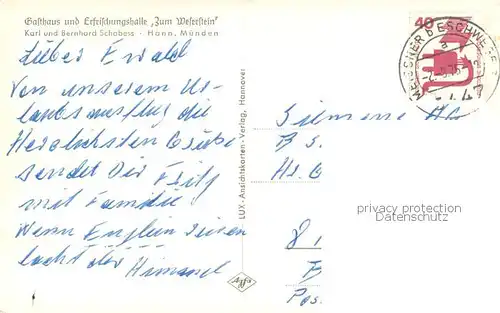 Gasthaus und Erfrischungshalle „Zum Weserstein"
Karl und Bernhard Schobess · Hann. Münden
Lieber Ewald
Von unserem Ur-
laubsausflug die
Herzlichsten Grüße
sendet Dir Fritz
mit Familie
Wenn Englein reisen
lacht der Himmel
LUX-Ansichtskarten-Verlag, Hannover
40
ESCHWE
Siemens AG
privacy protection
Datenschutz